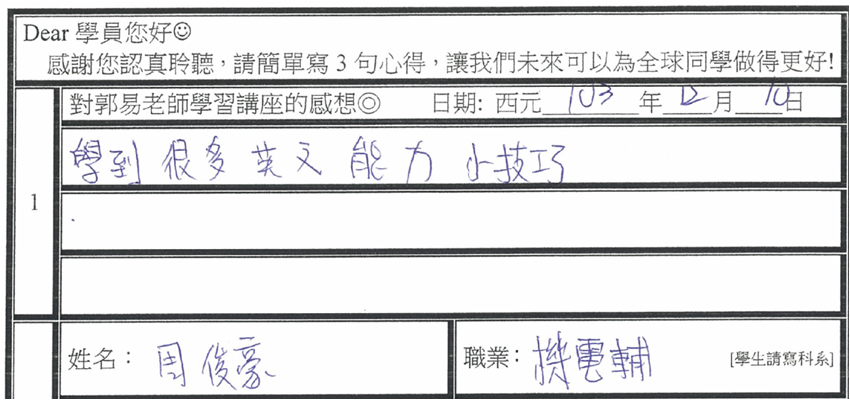 Dear 學員您好☺
感謝您認真聆聽，請簡單寫 3 句心得，讓我們未來可以為全球同學做得更好!
1
對郭易老師學習講座的感想◎ 日期: 西元 103 年 12 月 10 日
學到很多英文能力小技巧
姓名： 周俊豪 職業： 機電輔 [學生請寫科系]